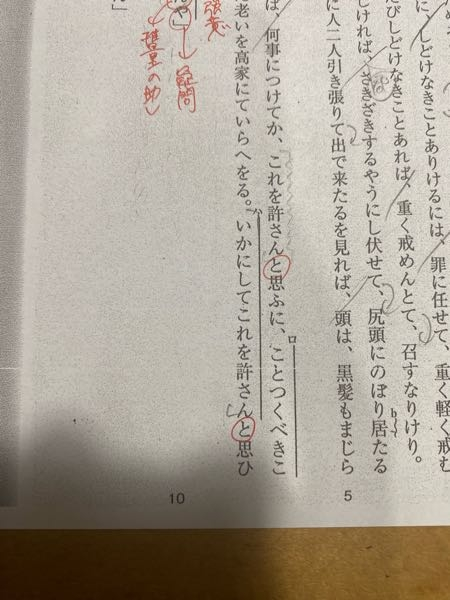 に、しどけなきことありけるには、罪に任せて、重く軽く戒む
びしどけなきことあれば、重く戒めんとて、召すなりけり。
ければ、さきざきするやうにし伏せて、尻頭にのぼり居たる
に人二人引き張りて出で来たるを見れば、頭は、黒髪もまじら
5
ば、何事につけてか、これを許さんと思ふに、ことつくべきこ
ロ
老いを高家にていらへをる。いかにしてこれを許さんと思ひ
か
10
強意
や
疑問